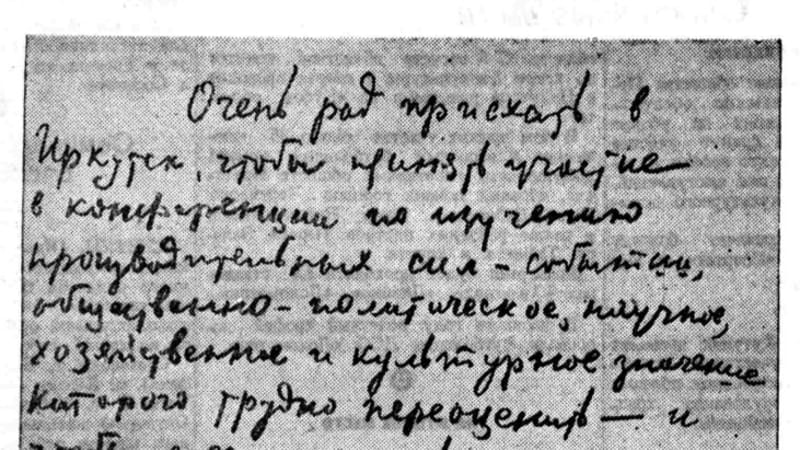 Очень рад приехать в
Иркутск, чтобы принять участие
в конференции по изучению
производительных сил – событии,
общественно-политическое, научное,
хозяйственное и культурное значение
которого трудно переоценить — и